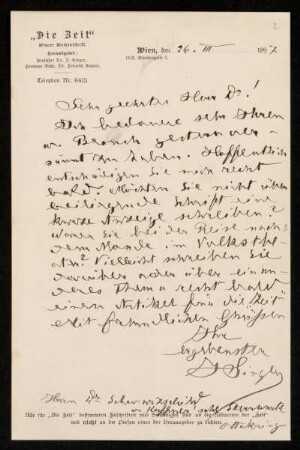 2
„Die Zeit“
Wiener Wochenschrift
Herausgeber:
Professor Dr. I. Singer,
Hermann Bahr, Dr. Heinrich Kanner.
Telephon Nr. 6415.
Wien, den 26. III 1897
IX/3, Günthergasse 1.
Sehr geehrter Herr Dr.!
Ich bedauere sehr Ihren
w. Besuch gestern ver-
säumt zu haben. Hoffentlich
entschädigen Sie mich recht
bald. Möchten Sie nicht über
beiliegende Schrift eine
kurze Anzeige schreiben?
Waren Sie bei der Reise nach
dem Monde im Volksthe-
ater? Vielleicht schreiben Sie
darüber oder über ein an-
deres Thema recht bald
einen Artikel für die „Zeit“
Mit freundlichen Grüssen
Ihr
ergebenster
Singer
Herrn Dr Schwarzschild
Kuffner'sche Sternwarte
Ottakring
Alle für „Die Zeit“ bestimmten Zuschriften und Sendungen sind an die Redaction der „Zeit“
und nicht an die Person eines der Herausgeber zu richten.